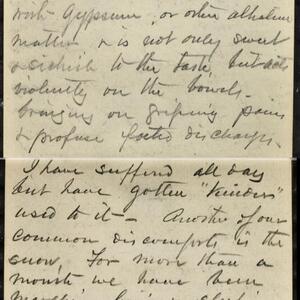 with gypsum, or other alkaline
matter & is not only sweet
& sickish to the taste, but acts
violently on the bowels –
bringing on griping pains
& profuse foetid discharges.
I have suffered all day
but have gotten "kinder"
used to it – Another of our
common discomforts is the
snow, For more than a
month we have been